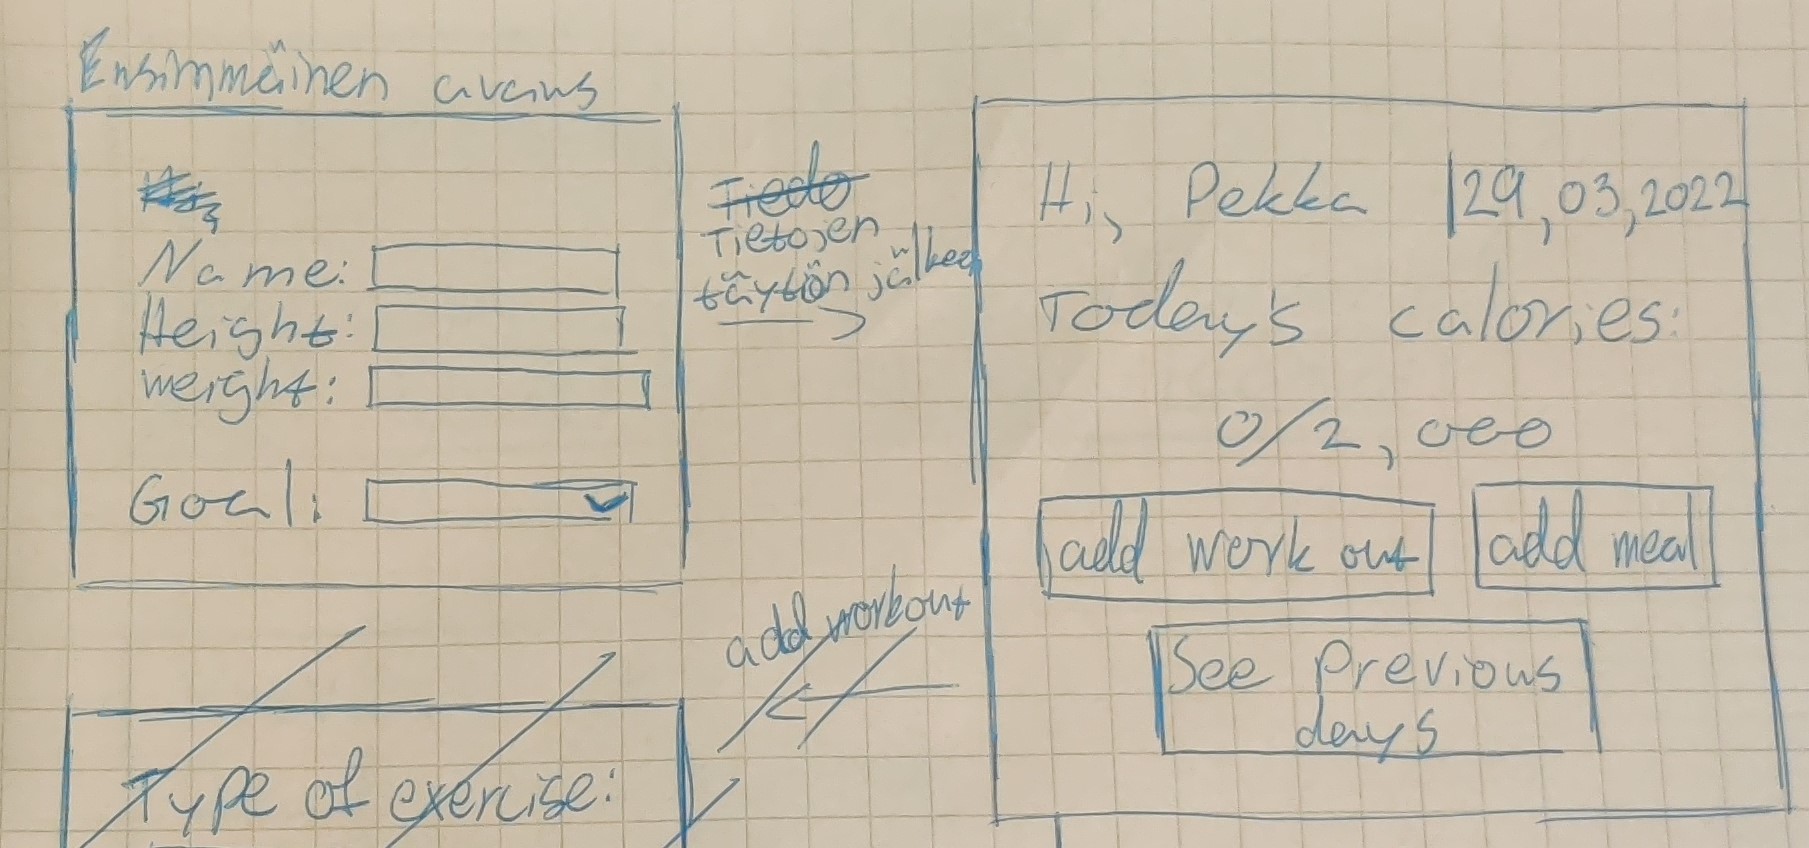 Ensimmäinen avaus
Name:
Height:
weight:
Goal:
Tiedo
Tietojen
täytön jälkeen
Hi, Pekka 29,03,2022
Today's calories:
0/2,000
add work out
add meal
See Previous
days
add workout
Type of exercise: